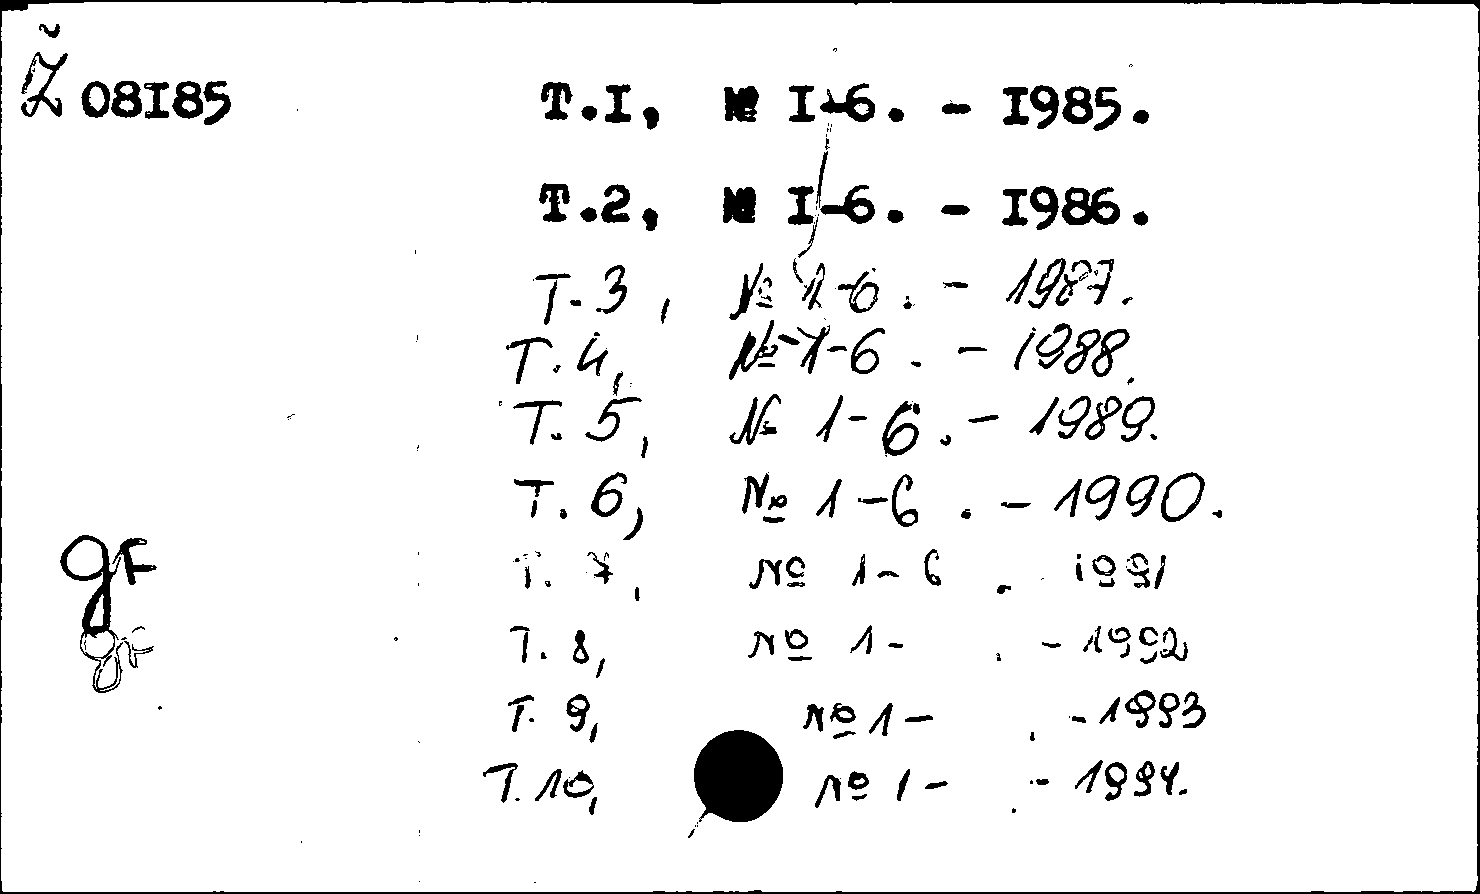 Ž 08I85
Т.I, № I-6. - I985.
Т.2, № I-6. - I986.
Т.3, № 1-6. - 1987.
Т.4, № 1-6. - 1988.
Т.5, № 1-6. - 1989.
Т.6, № 1-6. - 1990.
Т.7, № 1-6. 1991
Т.8, № 1- . - 1992
Т.9, № 1- . - 1993
Т.10, № 1- . - 1994.
gF
gF